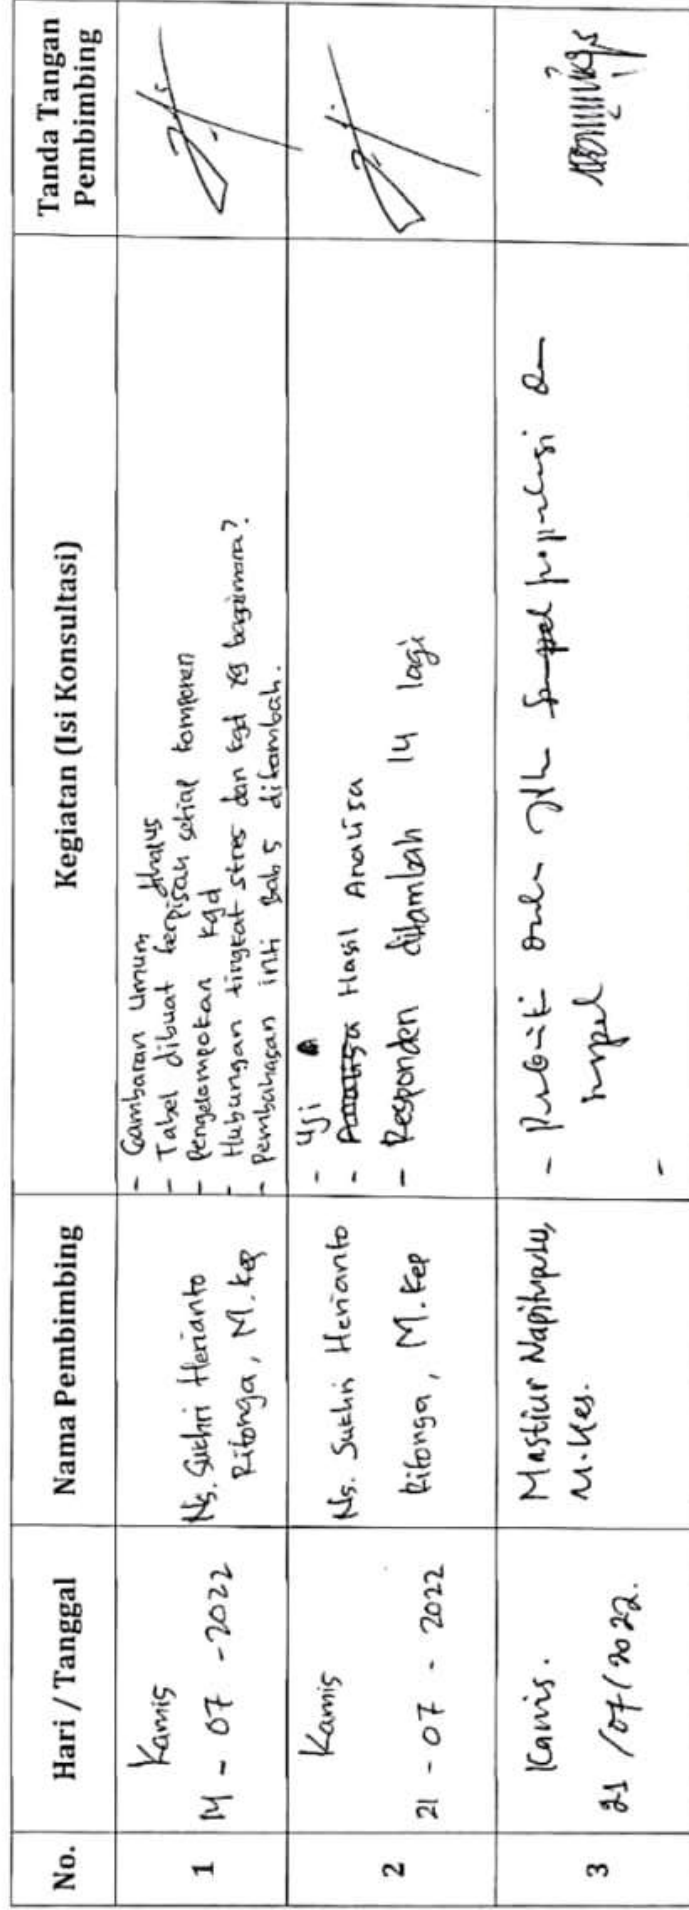 No.
Hari / Tanggal
Nama Pembimbing
Kegiatan (Isi Konsultasi)
Tanda Tangan
Pembimbing
1
Kamis
14 - 07 - 2022
Ns. Sukhri Herianto
Ritonga, M.Kep
- Gambaran Umum
- Tabel dibuat terpisah setiap komponen
- Pengelompokan kgd
- Hubungan tingkat stres dan kgd yg bagaimana?
- Pembahasan inti Bab 5 ditambah.
2
Kamis
21 - 07 - 2022
Ns. Sukhri Herianto
Ritonga, M.Kep
- Uji
- Hasil Analisa
- Responden ditambah 14 lagi
3
Kamis.
21/07/2022.
Mastiur Napitupulu,
M.Kes.
- Perbaiki jlh sampel populasi dan
sampel
-